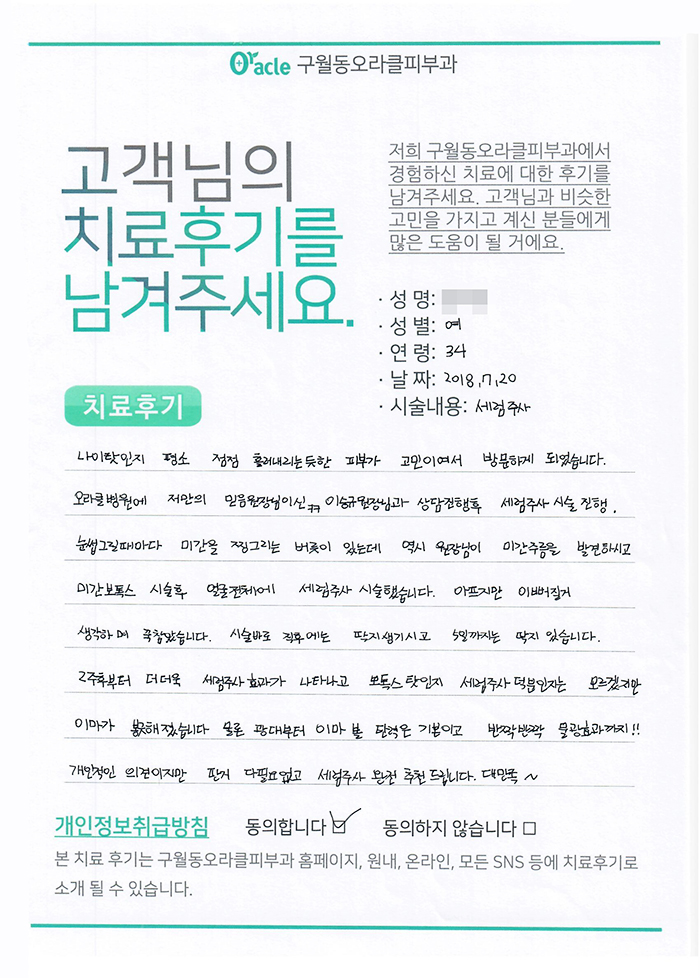 Oracle 구월동오라클피부과
고객님의
치료후기를
남겨주세요.
저희 구월동오라클피부과에서
경험하신 치료에 대한 후기를
남겨주세요. 고객님과 비슷한
고민을 가지고 계신 분들에게
많은 도움이 될 거에요.
· 성 명:
· 성 별: 여
· 연 령: 34
· 날 짜: 2018.7.20
· 시술내용: 세럼주사
치료후기
나이탓인지 평소 점점 흘러내리는듯한 피부가 고민이여서 방문하게 되었습니다.
오라클병원에 저만의 믿음원장님이신ㅋㅋ 이승규원장님과 상담진행후 세럼주사 시술 진행.
눈썹그릴때마다 미간을 찡그리는 버릇이 있는데 역시 원장님이 미간주름을 발견하시고
미간보톡스 시술후 얼굴전체에 세럼주사 시술했습니다. 아프지만 이뻐질거
생각하며 꾹참았습니다. 시술바로 직후에는 딱지생기시고 5일까지는 딱지 있습니다.
2주후부터 더더욱 세럼주사효과가 나타나고 보톡스 탓인지 세럼주사 덕분인지는 모르겠지만
이마가 봉긋해졌습니다 물론 광대부터 이마 볼 탄력은 기본이고 반짝반짝 물광효과까지!!
개인적인 의견이지만 딴거 다필요없고 세럼주사 완전 추천드립니다. 대만족~
개인정보취급방침 동의합니다 ☑ 동의하지 않습니다 □
본 치료 후기는 구월동오라클피부과 홈페이지, 원내, 온라인, 모든 SNS 등에 치료후기로
소개 될 수 있습니다.